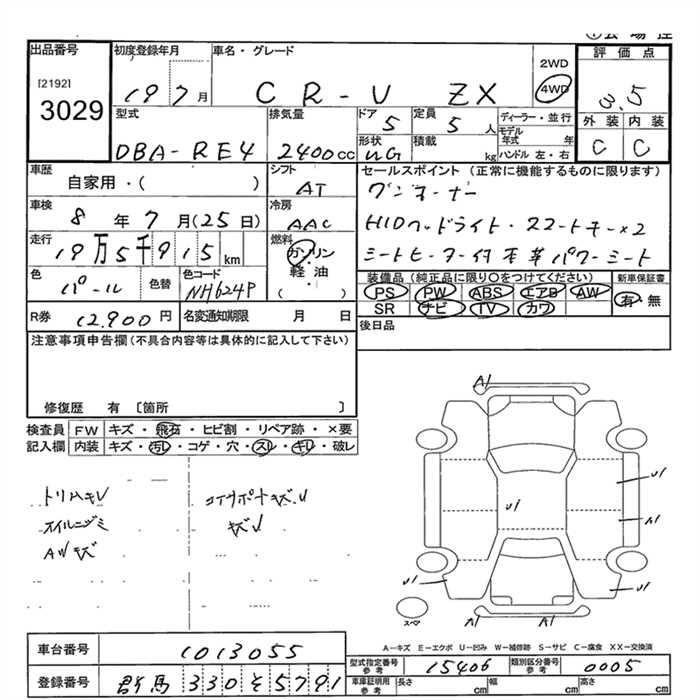 出品番号
[2192]
3029
初度登録年月
19 7月
車名・グレード
CR-V ZX
2WD
4WD
評価点
3.5
外装 内装
C C
型式
DBA-RE4
排気量
2400cc
ドア
5
定員
5人
形状
WG
積載
kg
ディーラー・並行
モデル年式 年
ハンドル 左・右
車歴
自家用・( )
シフト
AT
セールスポイント(正常に機能するものに限ります)
サンオーナー
HIDヘッドライト・スマートキー×2
シートヒーター付 本革パワーシート
車検
8年7月(25日)
冷房
AAC
走行
19万5千915km
燃料
ガソリン
軽油
( )
色
パール
色替
色コード
NH624P
装備品(純正品に限り○をつけてください)
PS PW ABS エアB AW
SR ナビ TV カワ
新車保証書
有・無
R券
12,900円
名変通知期限 月 日
後日品
注意事項申告欄(不具合内容等は具体的に記入して下さい)
修復歴 有 [箇所 ]
検査員記入欄
FW キズ・飛石・ヒビ割・リペア跡・×要
内装 キズ・汚レ・コゲ・穴・スレ・キレ・破レ
トリハキレ
オイルニジミ
AWキズ
コアサポートキズ、U
キズU
A1
U1
U1
A1
U1
U1
A1
A1
スペア
A-キズ E-エクボ U-凹み W-補修跡 S-サビ C-腐食 XX-交換済
車台番号
1013055
登録番号
群馬 330 そ 5791
型式指定番号
参考
15406
類別区分番号
参考
0005
車庫証明用
参考
長さ cm
幅 cm
高さ cm